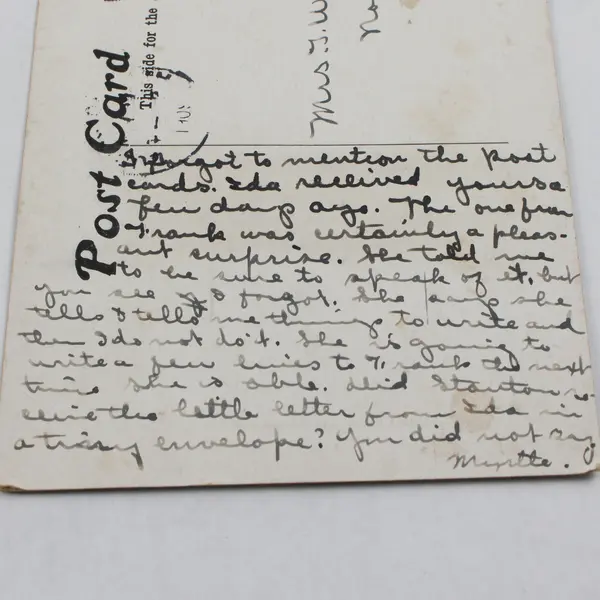 Post Card
This side for the
Mrs G. W
No
I forgot to mention the post
cards. Ida received yours a
few days ago. The one from
Frank was certainly a pleas-
ant surprise. She told me
to be sure to speak of it, but
you see I forgot. She says she
tells & tells me things to write and
then I do not do it. She is going to
write a few lines to Frank the next
time she is able. Did Stanton re-
ceive the little letter from Ida in
a tiny envelope? You did not say
Myrtle.